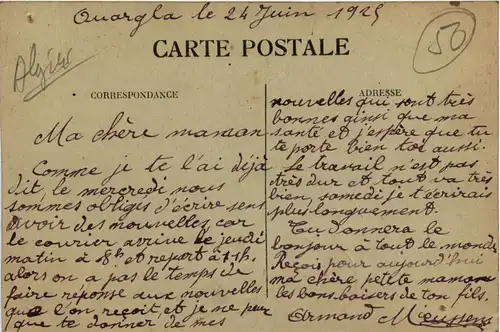 Ouargla le 24 Juin 1925
50
Algérie
CARTE POSTALE
CORRESPONDANCE
ADRESSE
Ma chère maman
Comme je te l'ai déjà
dit, le mercredi nous
sommes obligés d'écrire sens
avoir des nouvelles car
le courrier arrive le jeudi
matin à 8h et repart à 11h.
alors on a pas le temps de
faire réponse aux nouvelles
que l'on reçoit et je ne peux
que te donner de mes
nouvelles qui sont très
bonnes ainsi que ma
santé et j'espère que tu
te porte bien toi aussi.
Le travail n'est pas
très dur et tout va très
bien, samedi je t'écrirais
plus longuement.
Tu donnera le
bonjour à tout le monde
Reçois pour aujourd'hui
ma chère petite maman
les bons baisers de ton fils.
Armand